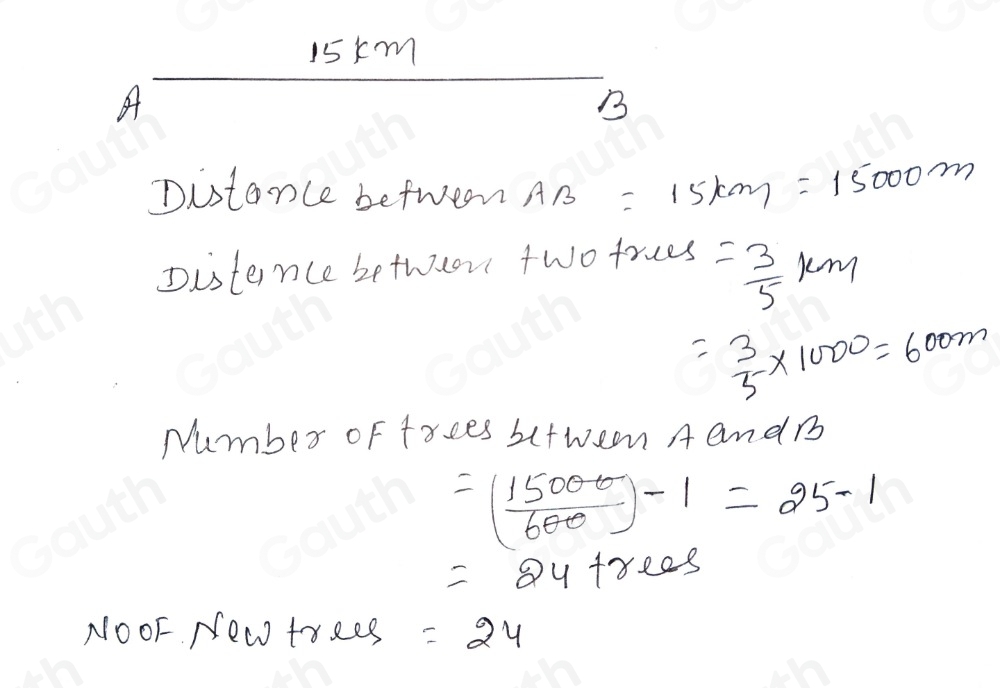 15 km
A B
Distance between AB = 15km = 15000m
Distance between two trees = 3/5 km
= 3/5 × 1000 = 600m
Number OF trees between A and B
= (15000/600) - 1 = 25-1
= 24 trees
NO OF New trees = 24
Gauth